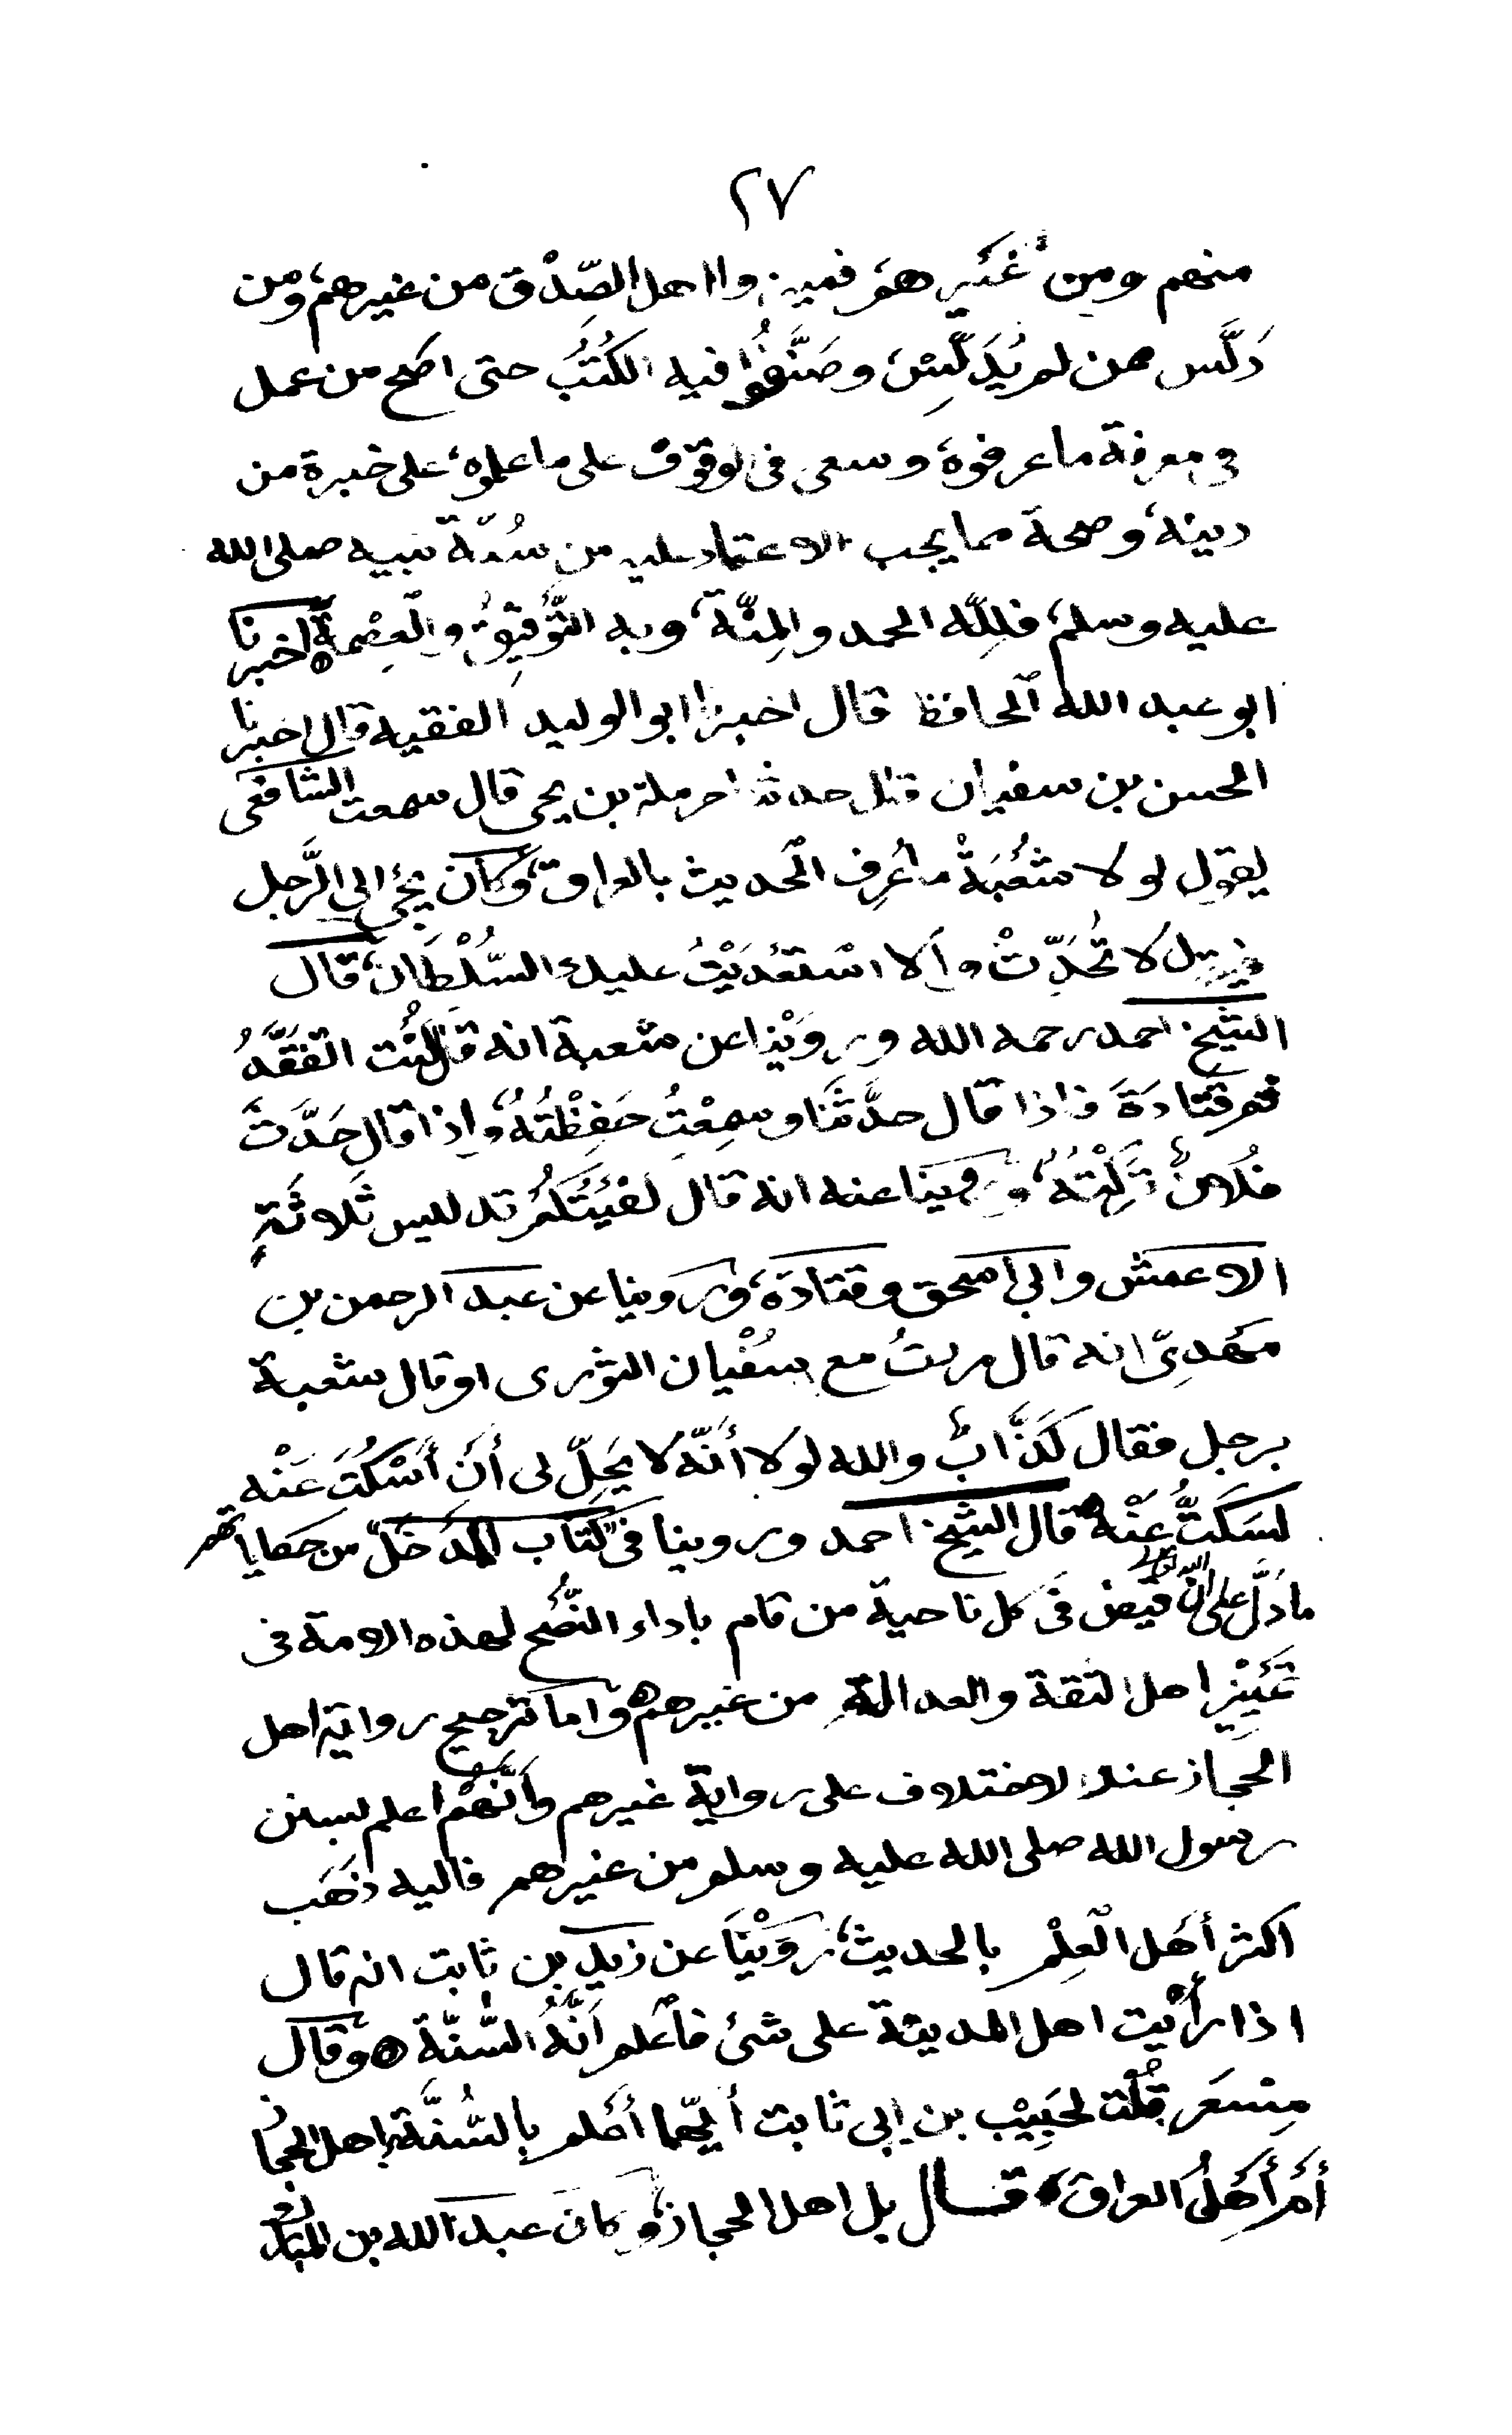 ٢٧
منهم ومن غَيرِ همَ فميزوا اهل الصِّدْق من غيرهم، ومن
دَلَّس ممن لم يُدَلِّسْ، وصَنَّفُوا فيه الكُتُبَ حتى اصبح من عمل
فى معرفة ما عرفوه، وسعى فى الوقوف على ما علموه، على خبرة من
دينه، وصحة مما يجب الاعتماد عليه من سُنّة نبيه صلى الله
عليه وسلم، فلِلّه الحمد والمِنّة، وبه التَّوْفِيق، والْعِصْمة اخبرنا
ابو عبد الله الحافظ قال اخبرنا ابو الوليد الفقيه قال اخبرنا
الحسن بن سفيان قال حدثنا حرملة بن يحيى قال سمعت الشافعى
يقول لو لا شُعْبَةْ ما عُرِف الْحديث بالعراق، وكان يجئ الى الرَّجل
فيقول لا تُحَدِّثْ والا اسْتَعْدَيْتُ عليك السُّلْطَان، قال
الشيخ احمد رحمه الله ورَوَيْنا عن شعبة انه قال كُنْت اتَفَقَّدُ
فم قَتَادَةَ فاذا قال حدَّثَنَا وسمِعْتُ حَفِظْتُهُ، واذا قال حَدَّثَ
فُلانٌ تَرَكْتُهُ، وروينا عنه انه قال كفيْتُكُمْ تدليس ثَلاثَةٍ
الاعمش وابى اسحق وقتادَة، وروينا عن عبد الرحمن بن
مَهدِىّ انه قال مررتُ مع سُفْيان الثورى او قال شعبة
برجل فقال كَذَّابٌ والله لولا أنَّه لا يَحِلّ لى أنْ أَسْكُتَ عَنْه
لسَكَتُّ عَنْهُ ٥ قال الشيخ احمد وروينا فى كتاب المَدخَلِ من حكاياتهم
ما دَلَّ على ان الله تعالى قيض فى كل ناحية من قام باداء النُّصْح لهذه الامة فى
تمييْز اهل الثقة والعدالة من غيرهم ٥ واما ترجيح رواية اهل
الحجاز عند الاختلاف على رواية غيرهم وأنَّهُمْ اعلم بسنن
رسول الله صلى الله عليه وسلم من غيرهم فاليه ذَهَب
اكثر أهَل الْعِلْم بالحديث، رَوَيْنَا عن زيد بن ثابت انه قال
اذا رأَيْت اهل المدينة على شئ فاعْلم أنَّهُ السُّنّة ٥ وقال
مِسْعَر قُلْت لحَبِيْب بن ابى ثابت أيّهما أعْلم بالسُّنَّة اهل الحجاز
أَمْ أَهْلُ العراق، قال بل اهل الحجاز، وكان عبد الله بن المبارك